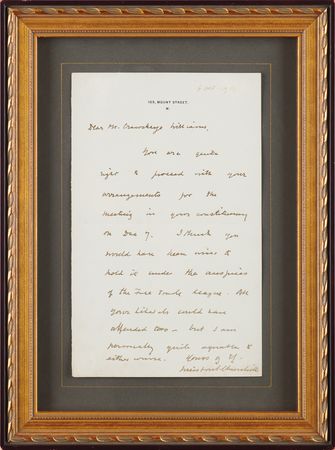 105, MOUNT STREET,
W.
Dear Mr. Crawshay Williams,
You are quite
right to proceed with your
arrangements for the
meeting in your constituency
on Dec 7. I think you
would have been wise to
hold it under the auspices
of the Free Trade League. All
your Liberals could have
attended too – but I am
personally quite agreeable to
either course. Yours
Winston S. Churchill